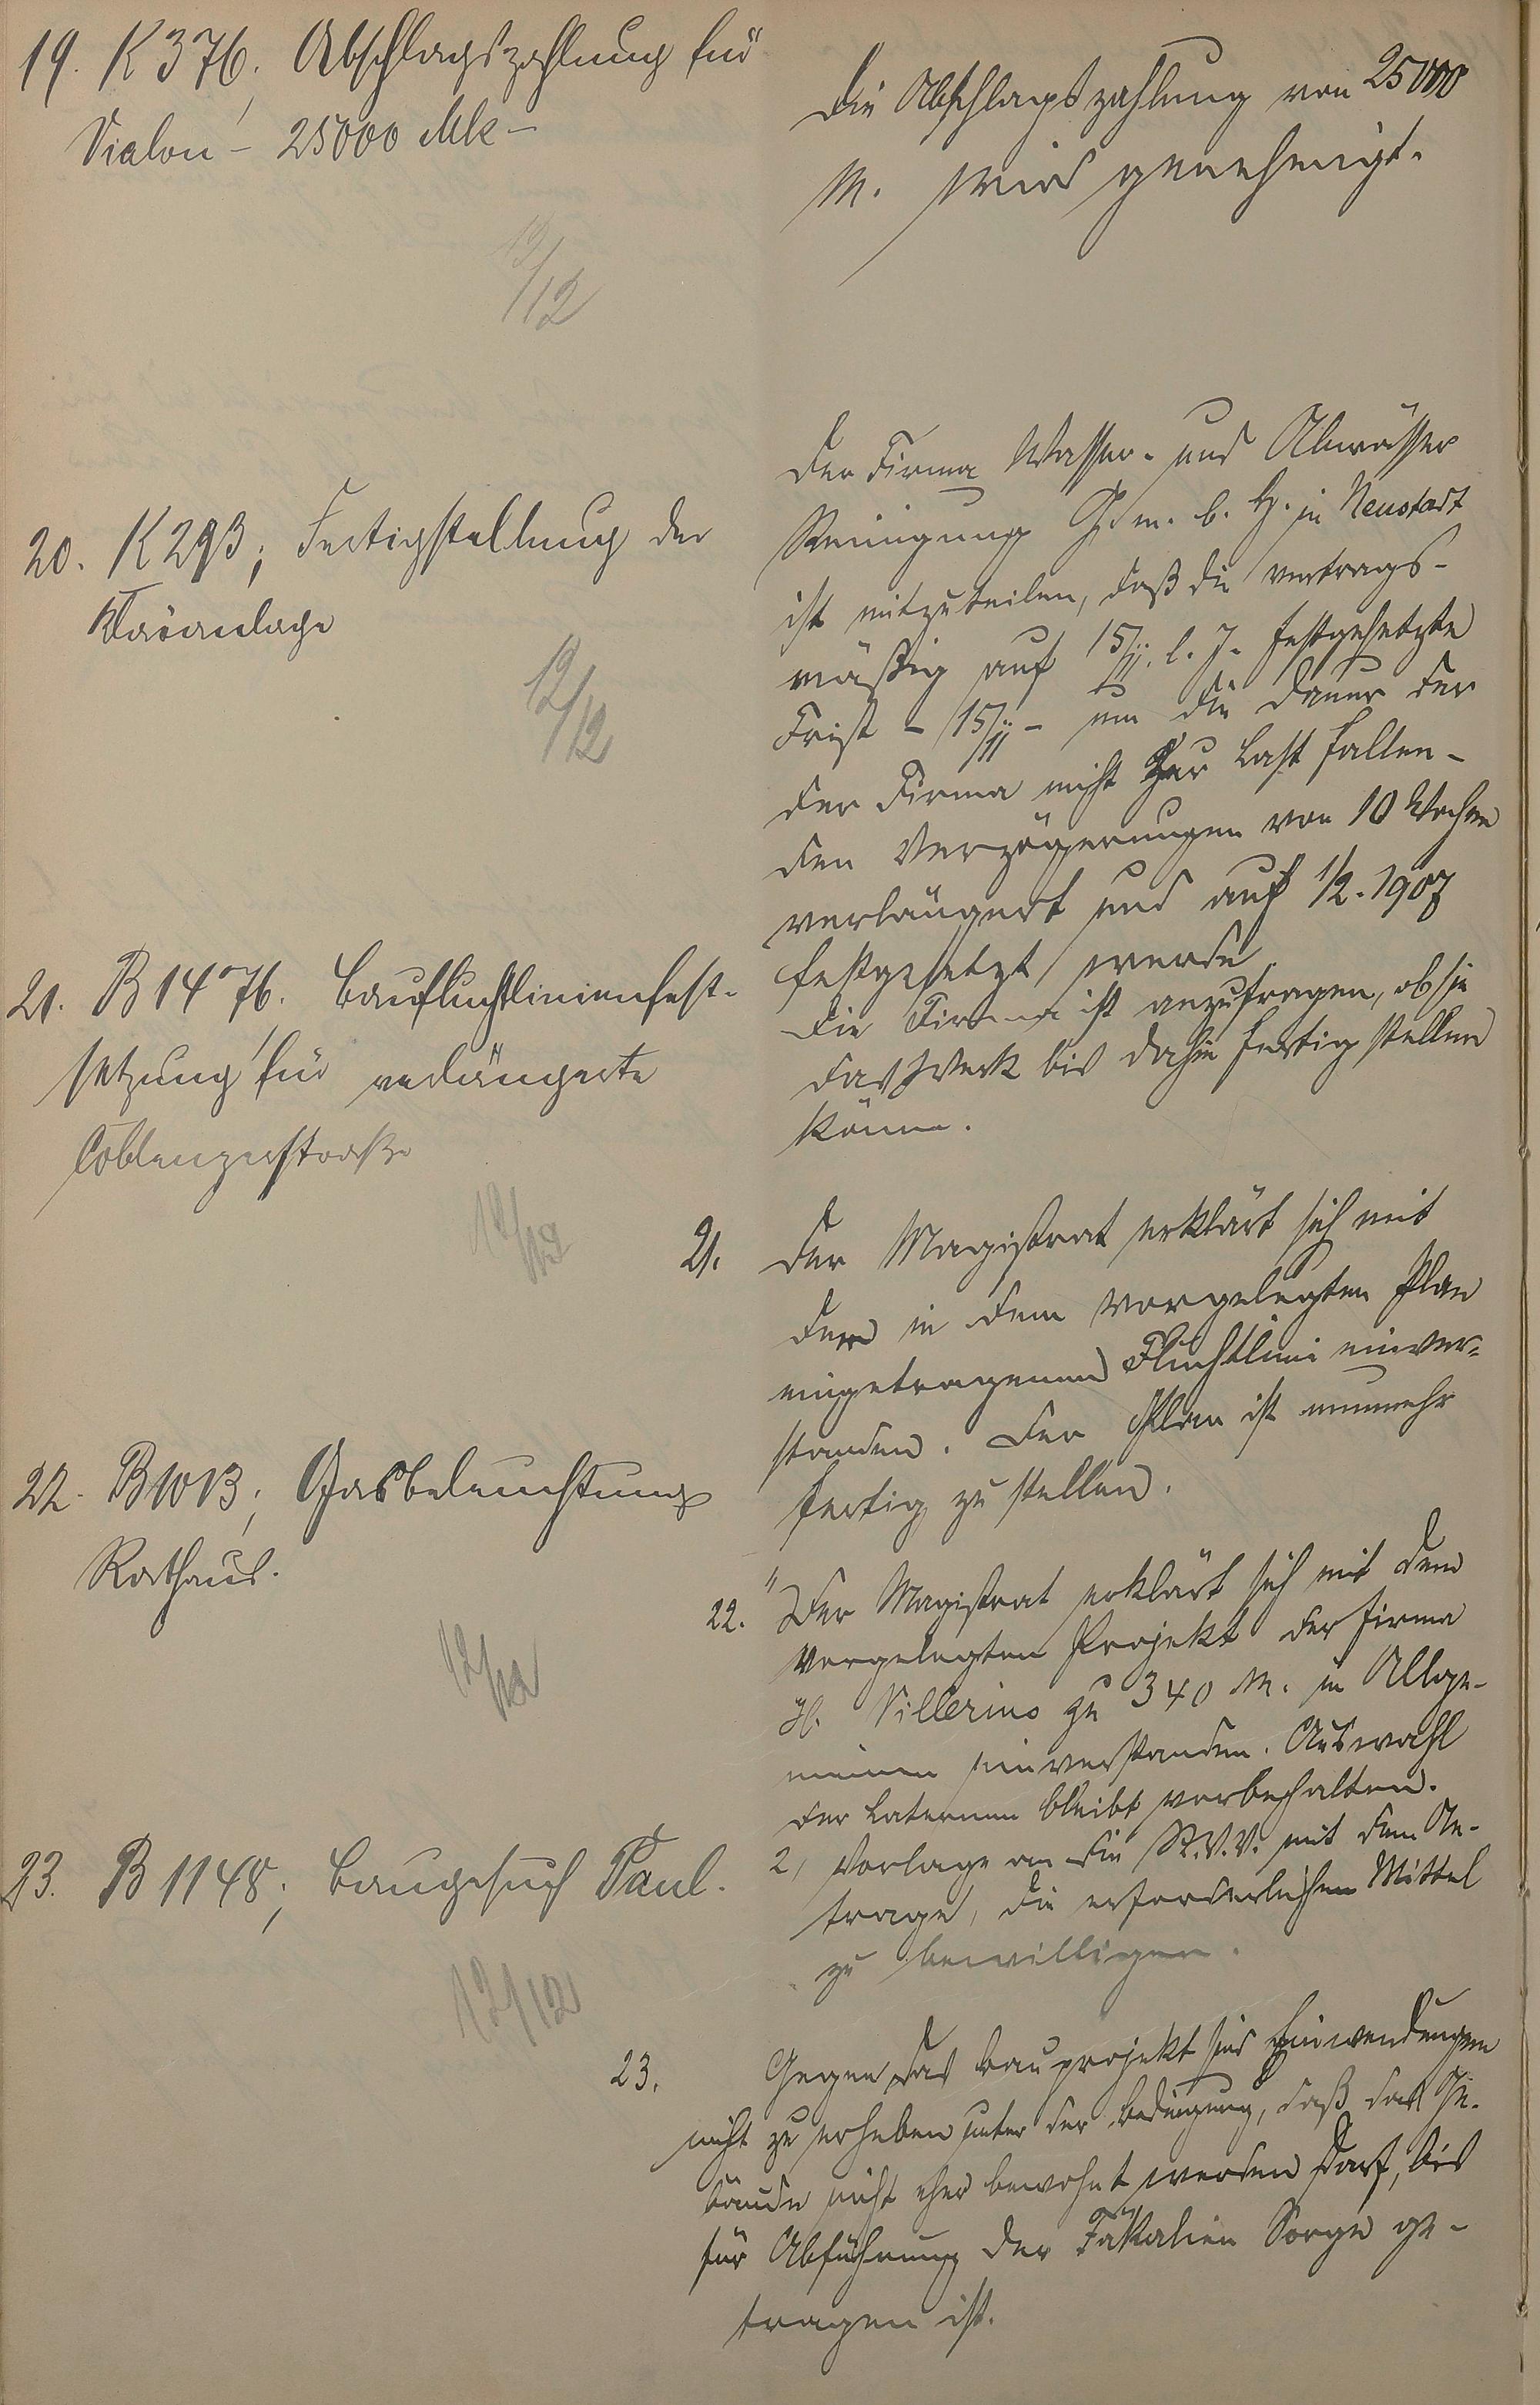 19. K 376, Abschlagszahlung für
Vialon - 25000 Mk -
12/12
Die Abschlagszahlung von 25000
M. wird genehmigt.
20. K 293; Fertigstellung der
Kläranlage
12/12
Der Firma Wasser- und Abwässer
Reinigung G. m. b. H. in Neustadt
ist mitzuteilen, daß die vertrags-
mäßig auf 15/11. l. J. festgesetzte
Frist - 15/11 - um die Dauer der
der Firma nicht zur Last fallen-
den Verzögerungen von 10 Wochen
verlängert und auf 1/2. 1907
festgesetzt werde.
Die Firma ist anzufragen, ob sie
das Werk bis dahin fertig stellen
könne.
21. B 1476. Baufluchtlinienfest-
setzung für verlängerte
Coblenzerstraße
12/12
21. Der Magistrat erklärt sich mit
der in dem vorgelegten Plan
eingetragenen Fluchtlinie einver-
standen. Der Plan ist nunmehr
fertig zu stellen.
22. B 1013; Gasbeleuchtung
Rathaus.
12/12
22. Der Magistrat erklärt sich mit dem
vorgelegten Projekt der Firma
H. Villerius zu 340 M. im Allge-
meinen einverstanden. Auswahl
der Laternen bleibt vorbehalten.
2, Vorlage an die St. V. V. mit dem An-
trage, die erforderlichen Mittel
zu bewilligen.
23. B 1148; Baugesuch Paul.
12/12
23. Gegen das Bauprojekt sind Einwendungen
nicht zu erheben unter der Bedingung, daß das Ge-
bäude nicht eher bewohnt werden darf, bis
für Abführung der Fäkalien Sorge ge-
tragen ist.